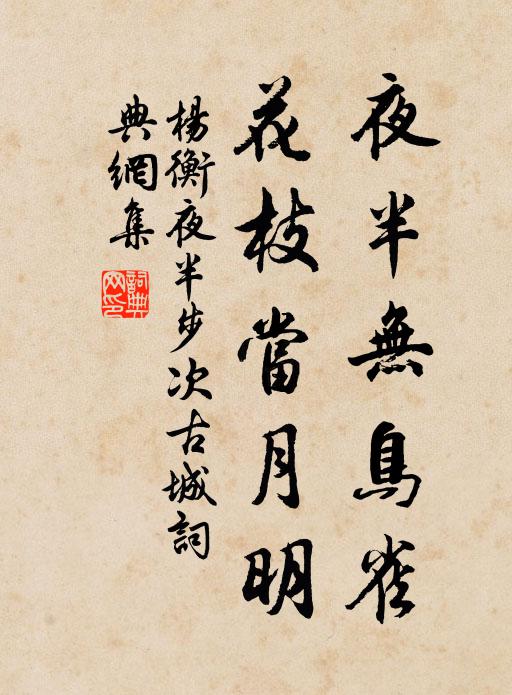 夜半無鳥雀
花枝當月明
楊衡夜半步次古城詞
典網集
詞典網印